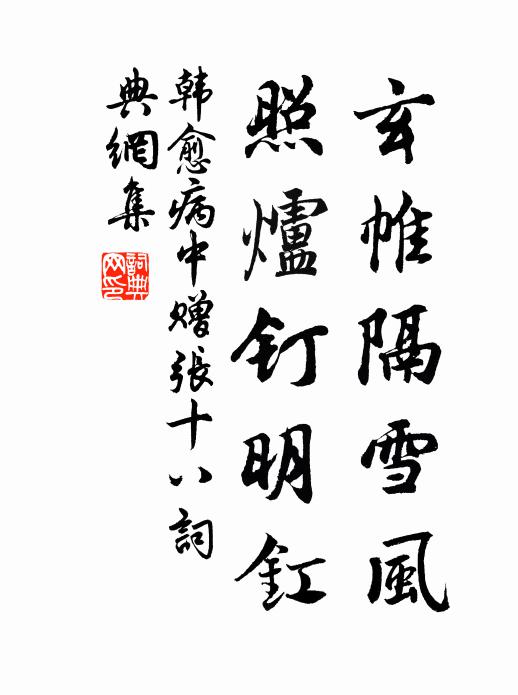 玄帷隔雪風
照爐釘明釭
韓愈病中贈張十八詞
典網集
詞典
网印